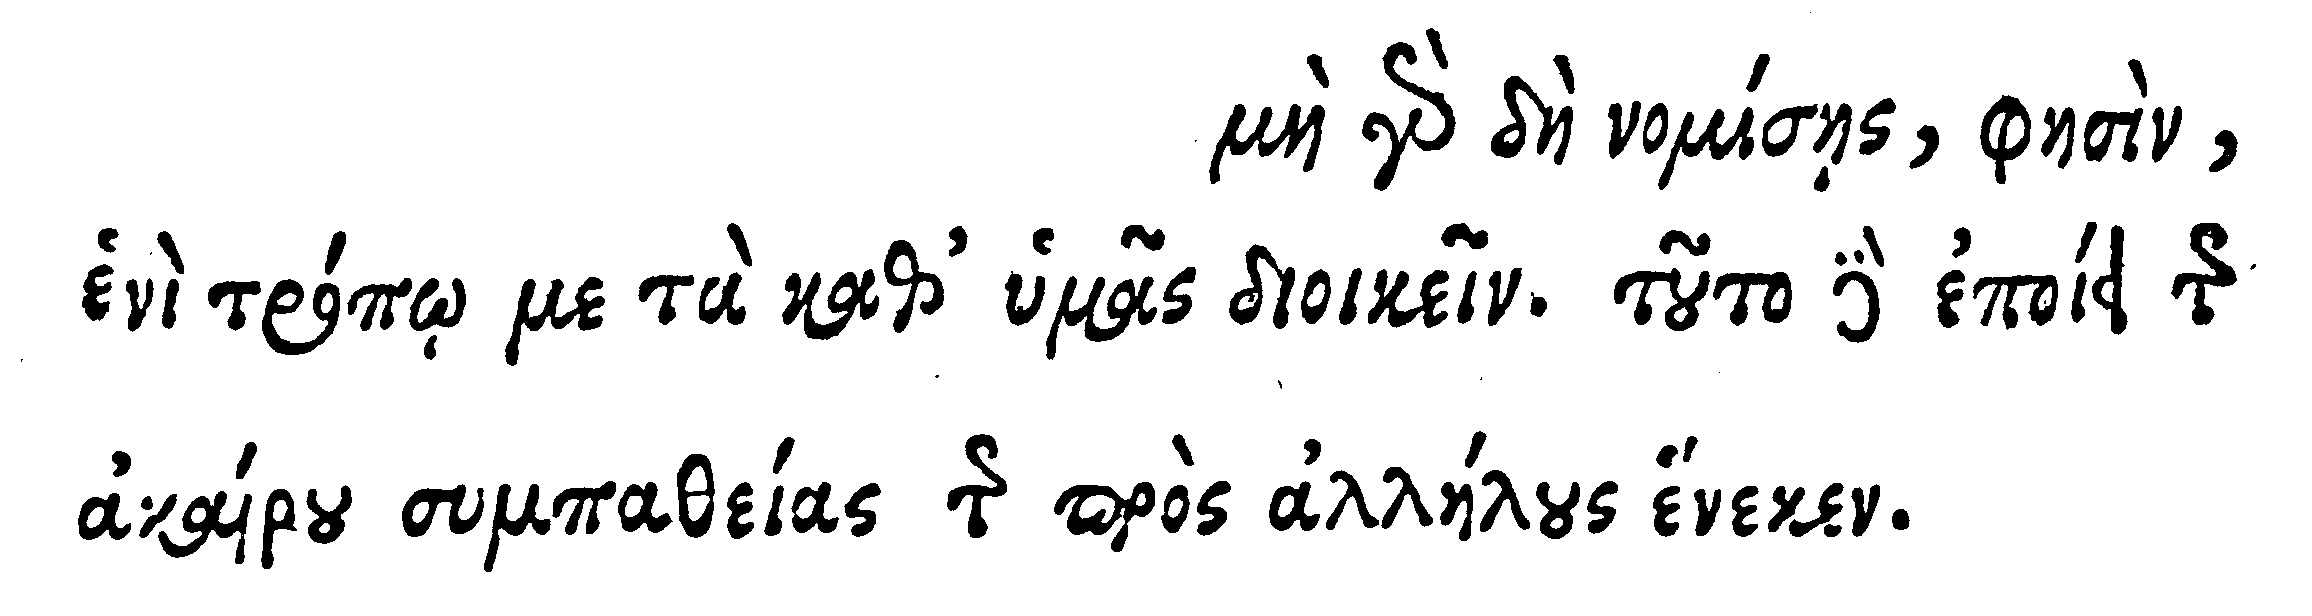 μὴ γὰρ δὴ νομίσῃς, φησὶν,
ἑνὶ τρόπῳ με τὰ καθ’ ὑμᾶς διοικεῖν. τοῦτο δὲ ἐποίει τῆς
ἀκαίρου συμπαθείας τῆς πρὸς ἀλλήλους ἕνεκεν.